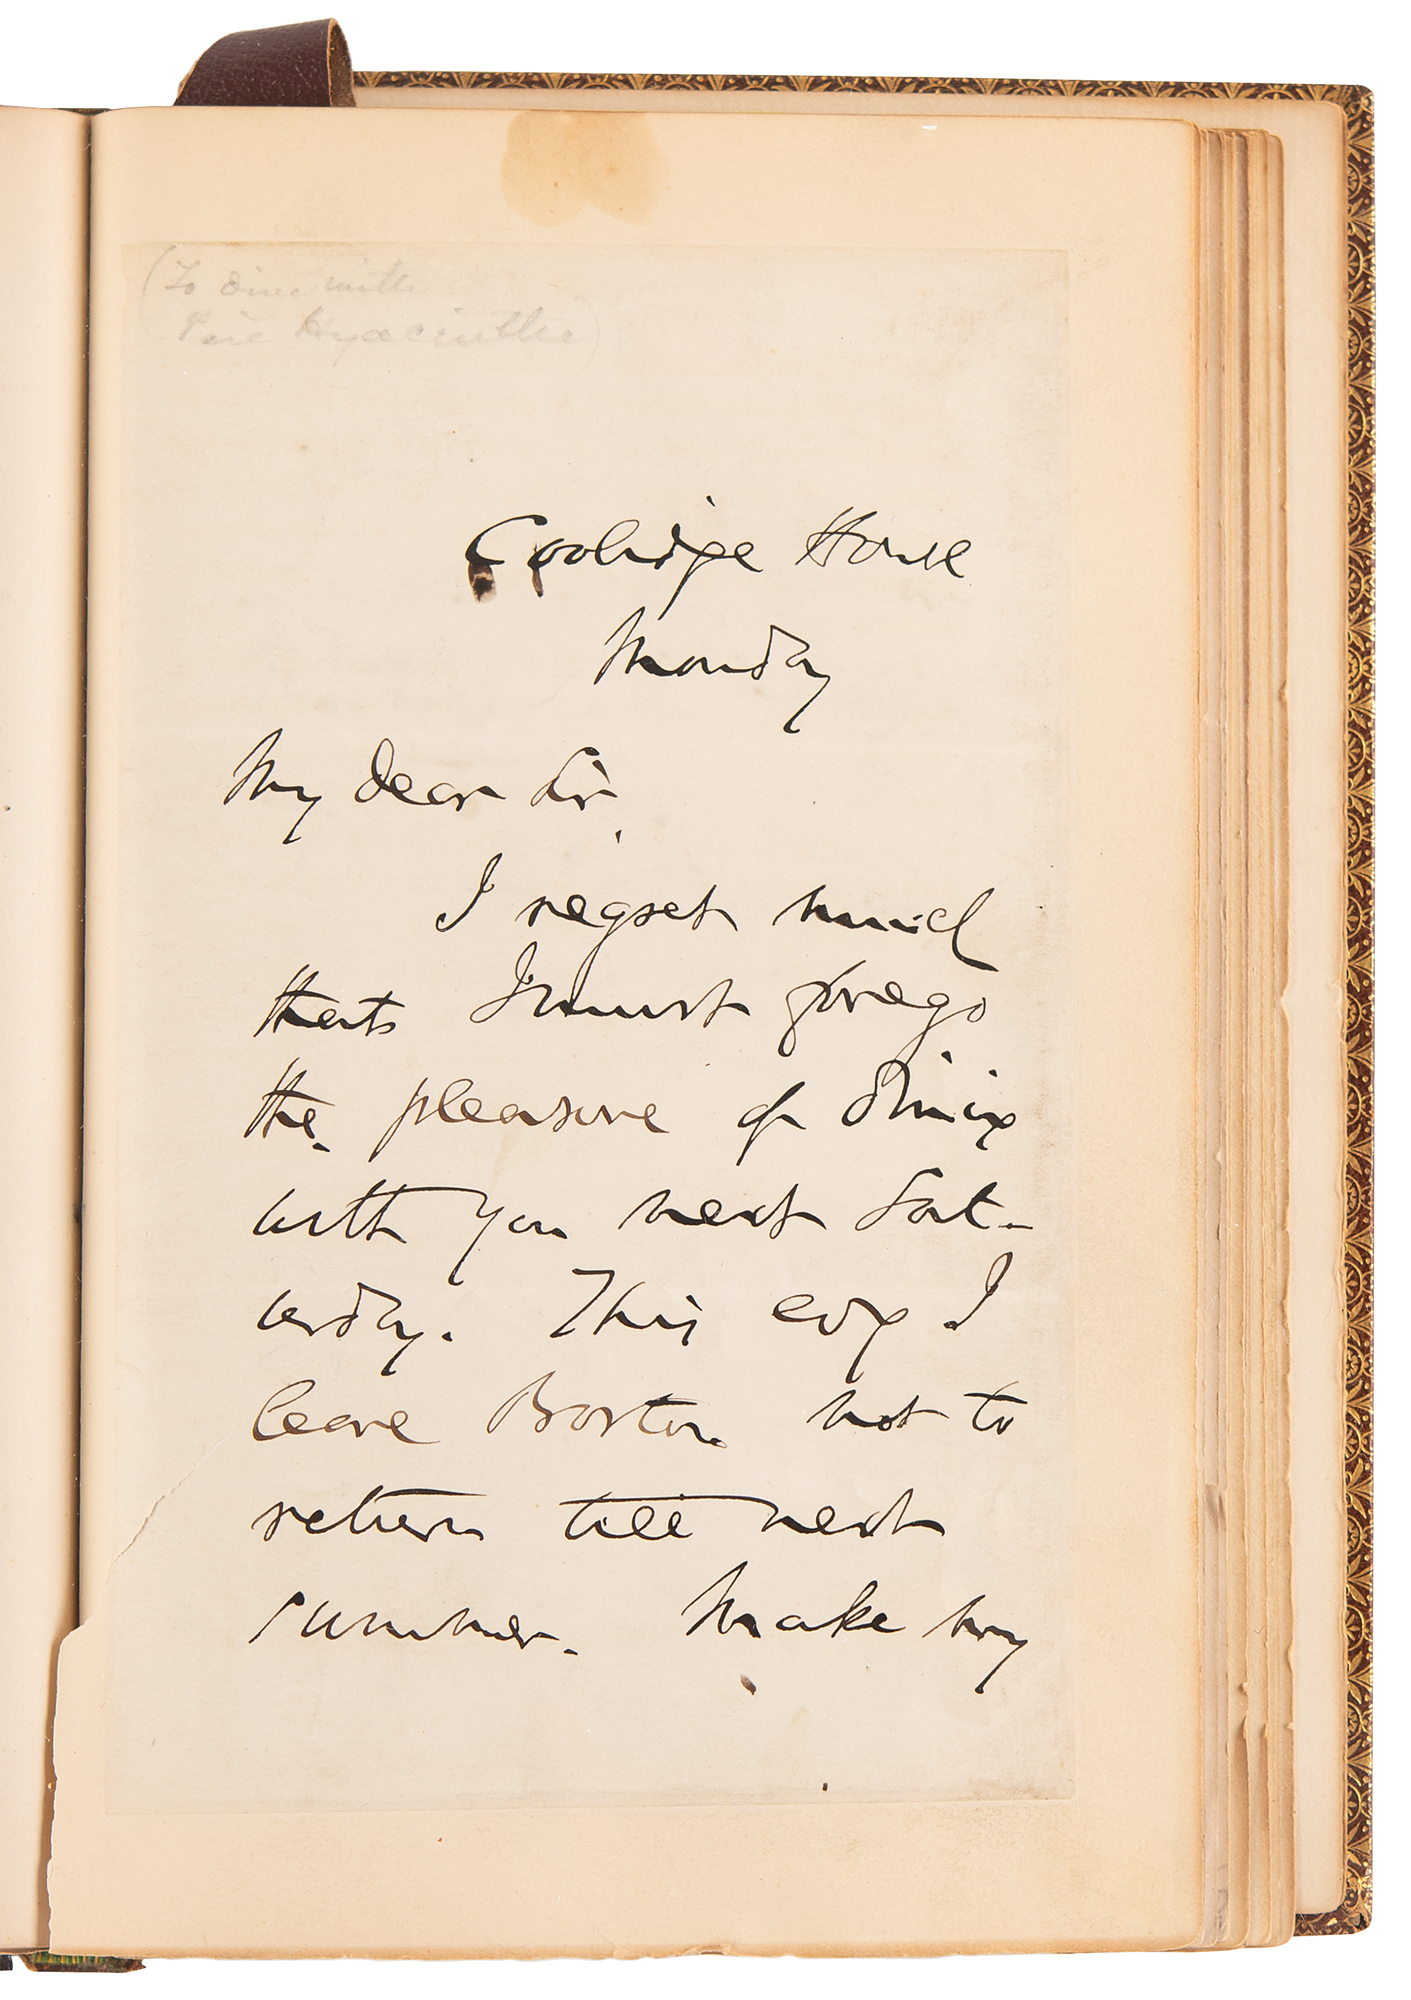 (To dine with
Père Hyacinthe)
Coolidge House
Monday
My dear Sir,
I regret much
that I must forego
the pleasure of dining
with you next Sat-
urday. This evg I
leave Boston not to
return till next
summer. Make my